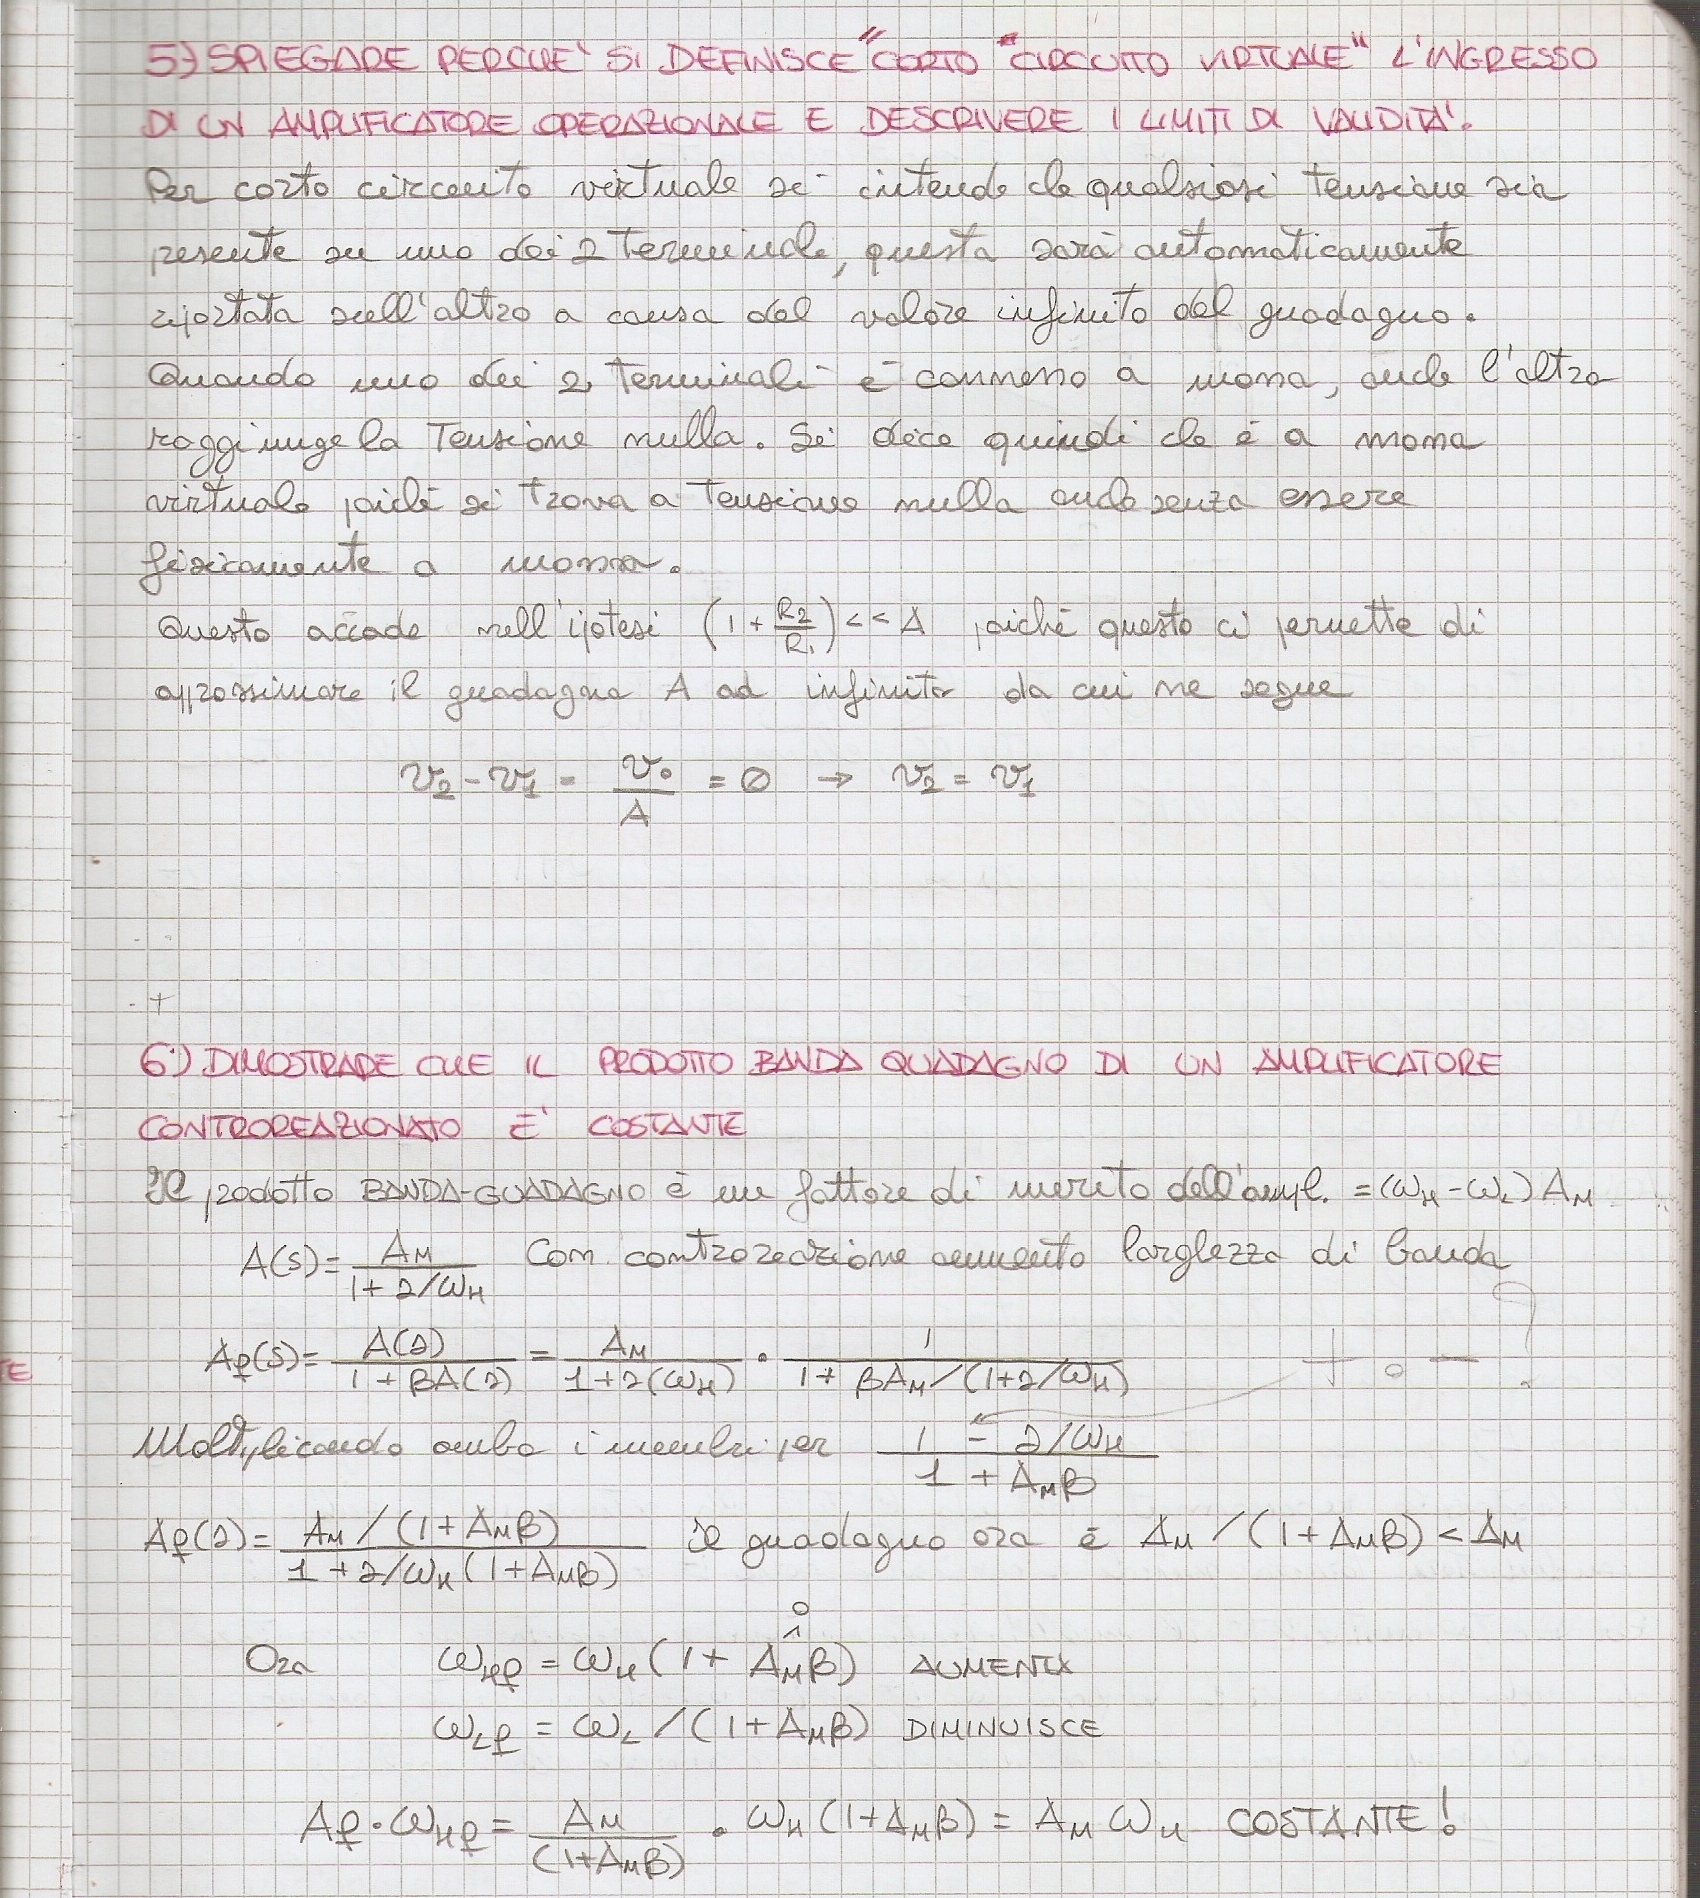 5) SPIEGARE PERCHE' SI DEFINISCE "CORTO "CIRCUITO VIRTUALE" L'INGRESSO
DI UN AMPLIFICATORE OPERAZIONALE E DESCRIVERE I LIMITI DI VALIDITA'.
Per corto circuito virtuale si intende che qualsiasi tensione sia
presente su uno dei 2 terminali, questa sarà automaticamente
riportata sull'altro a causa del valore infinito del guadagno.
Quando uno dei 2 terminali è connesso a massa, anche l'altro
raggiunge la tensione nulla. Si dice quindi che è a massa
virtuale poiché si trova a tensione nulla anche senza essere
fisicamente a massa.
Questo accade nell'ipotesi (1 + R2/R1) << A poiché questo ci permette di
approssimare il guadagno A ad infinito da cui ne segue
v2 - v1 = vo/A = 0 → v2 = v1
6) DIMOSTRARE CHE IL PRODOTTO BANDA GUADAGNO DI UN AMPLIFICATORE
CONTROREAZIONATO E' COSTANTE
Il prodotto BANDA-GUADAGNO è un fattore di merito dell'ampl. = (ωH - ωL) AM
A(s) = AM / 1 + s/ωH Con controreazione aumento larghezza di banda
Af(s) = A(s) / 1 + βA(s) = AM / 1+s(ωH) · 1 / 1 + βAM/(1+s/ωH) + o - ?
Moltiplicando ambo i membri per 1 - s/ωH / 1 + AMβ
Af(s) = AM/(1+AMβ) / 1+s/ωH(1+AMβ) il guadagno ora è AM/(1+AMβ) < AM
Ora ωHf = ωH (1 + AMβ) AUMENTA
ωLf = ωL/(1+AMβ) DIMINUISCE
Af·ωHf = AM / (1+AMβ) · ωH (1+AMβ) = AM ωH COSTANTE!